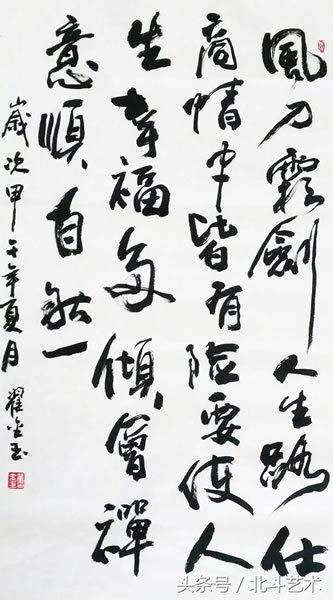 風刀霜劍人生路仕
商情中皆有險要使人
生幸福多領會禪
意順自然一
歲次甲午年夏月 翟金玉
头条号 / 北斗艺术